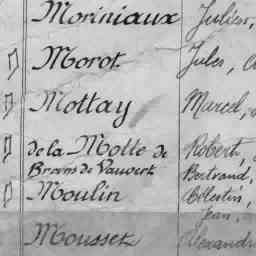 Moriniaux Julien,
Morot Jules,
Mottay Marcel,
de la Motte de Robert,
Brerns de Vauvert Bertrand,
Moulin Célestin,
Jean,
Mousset Alexandre